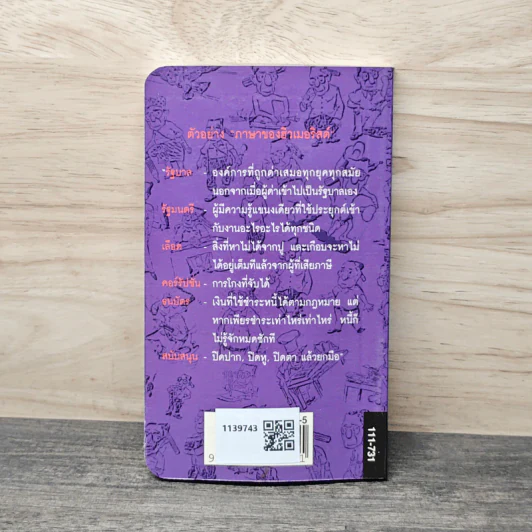 ตัวอย่าง "ภาษาของฮิวเมอริสต์"
"รัฐบาล - องค์การที่ถูกด่าเสมอทุกยุคทุกสมัย
นอกจากเมื่อผู้ด่าเข้าไปเป็นรัฐบาลเอง
รัฐมนตรี - ผู้มีความรู้แขนงเดียวที่ใช้ประยุกต์เข้า
กับงานอะไรอะไรได้ทุกชนิด
เลือด - สิ่งที่หาไม่ได้จากปู และเกือบจะหาไม่
ได้อยู่เต็มทีแล้วจากผู้ที่เสียภาษี
คอร์รัปชั่น - การโกงที่จับได้
ธนบัตร - เงินที่ใช้ชำระหนี้ได้ตามกฎหมาย แต่
หากเพียรชำระเท่าไหร่เท่าไหร่ หนี้ก็
ไม่รู้จักหมดซักที
สนับสนุน - ปิดปาก, ปิดหู, ปิดตา แล้วยกมือ"
1139743
-5
9
1
111-731